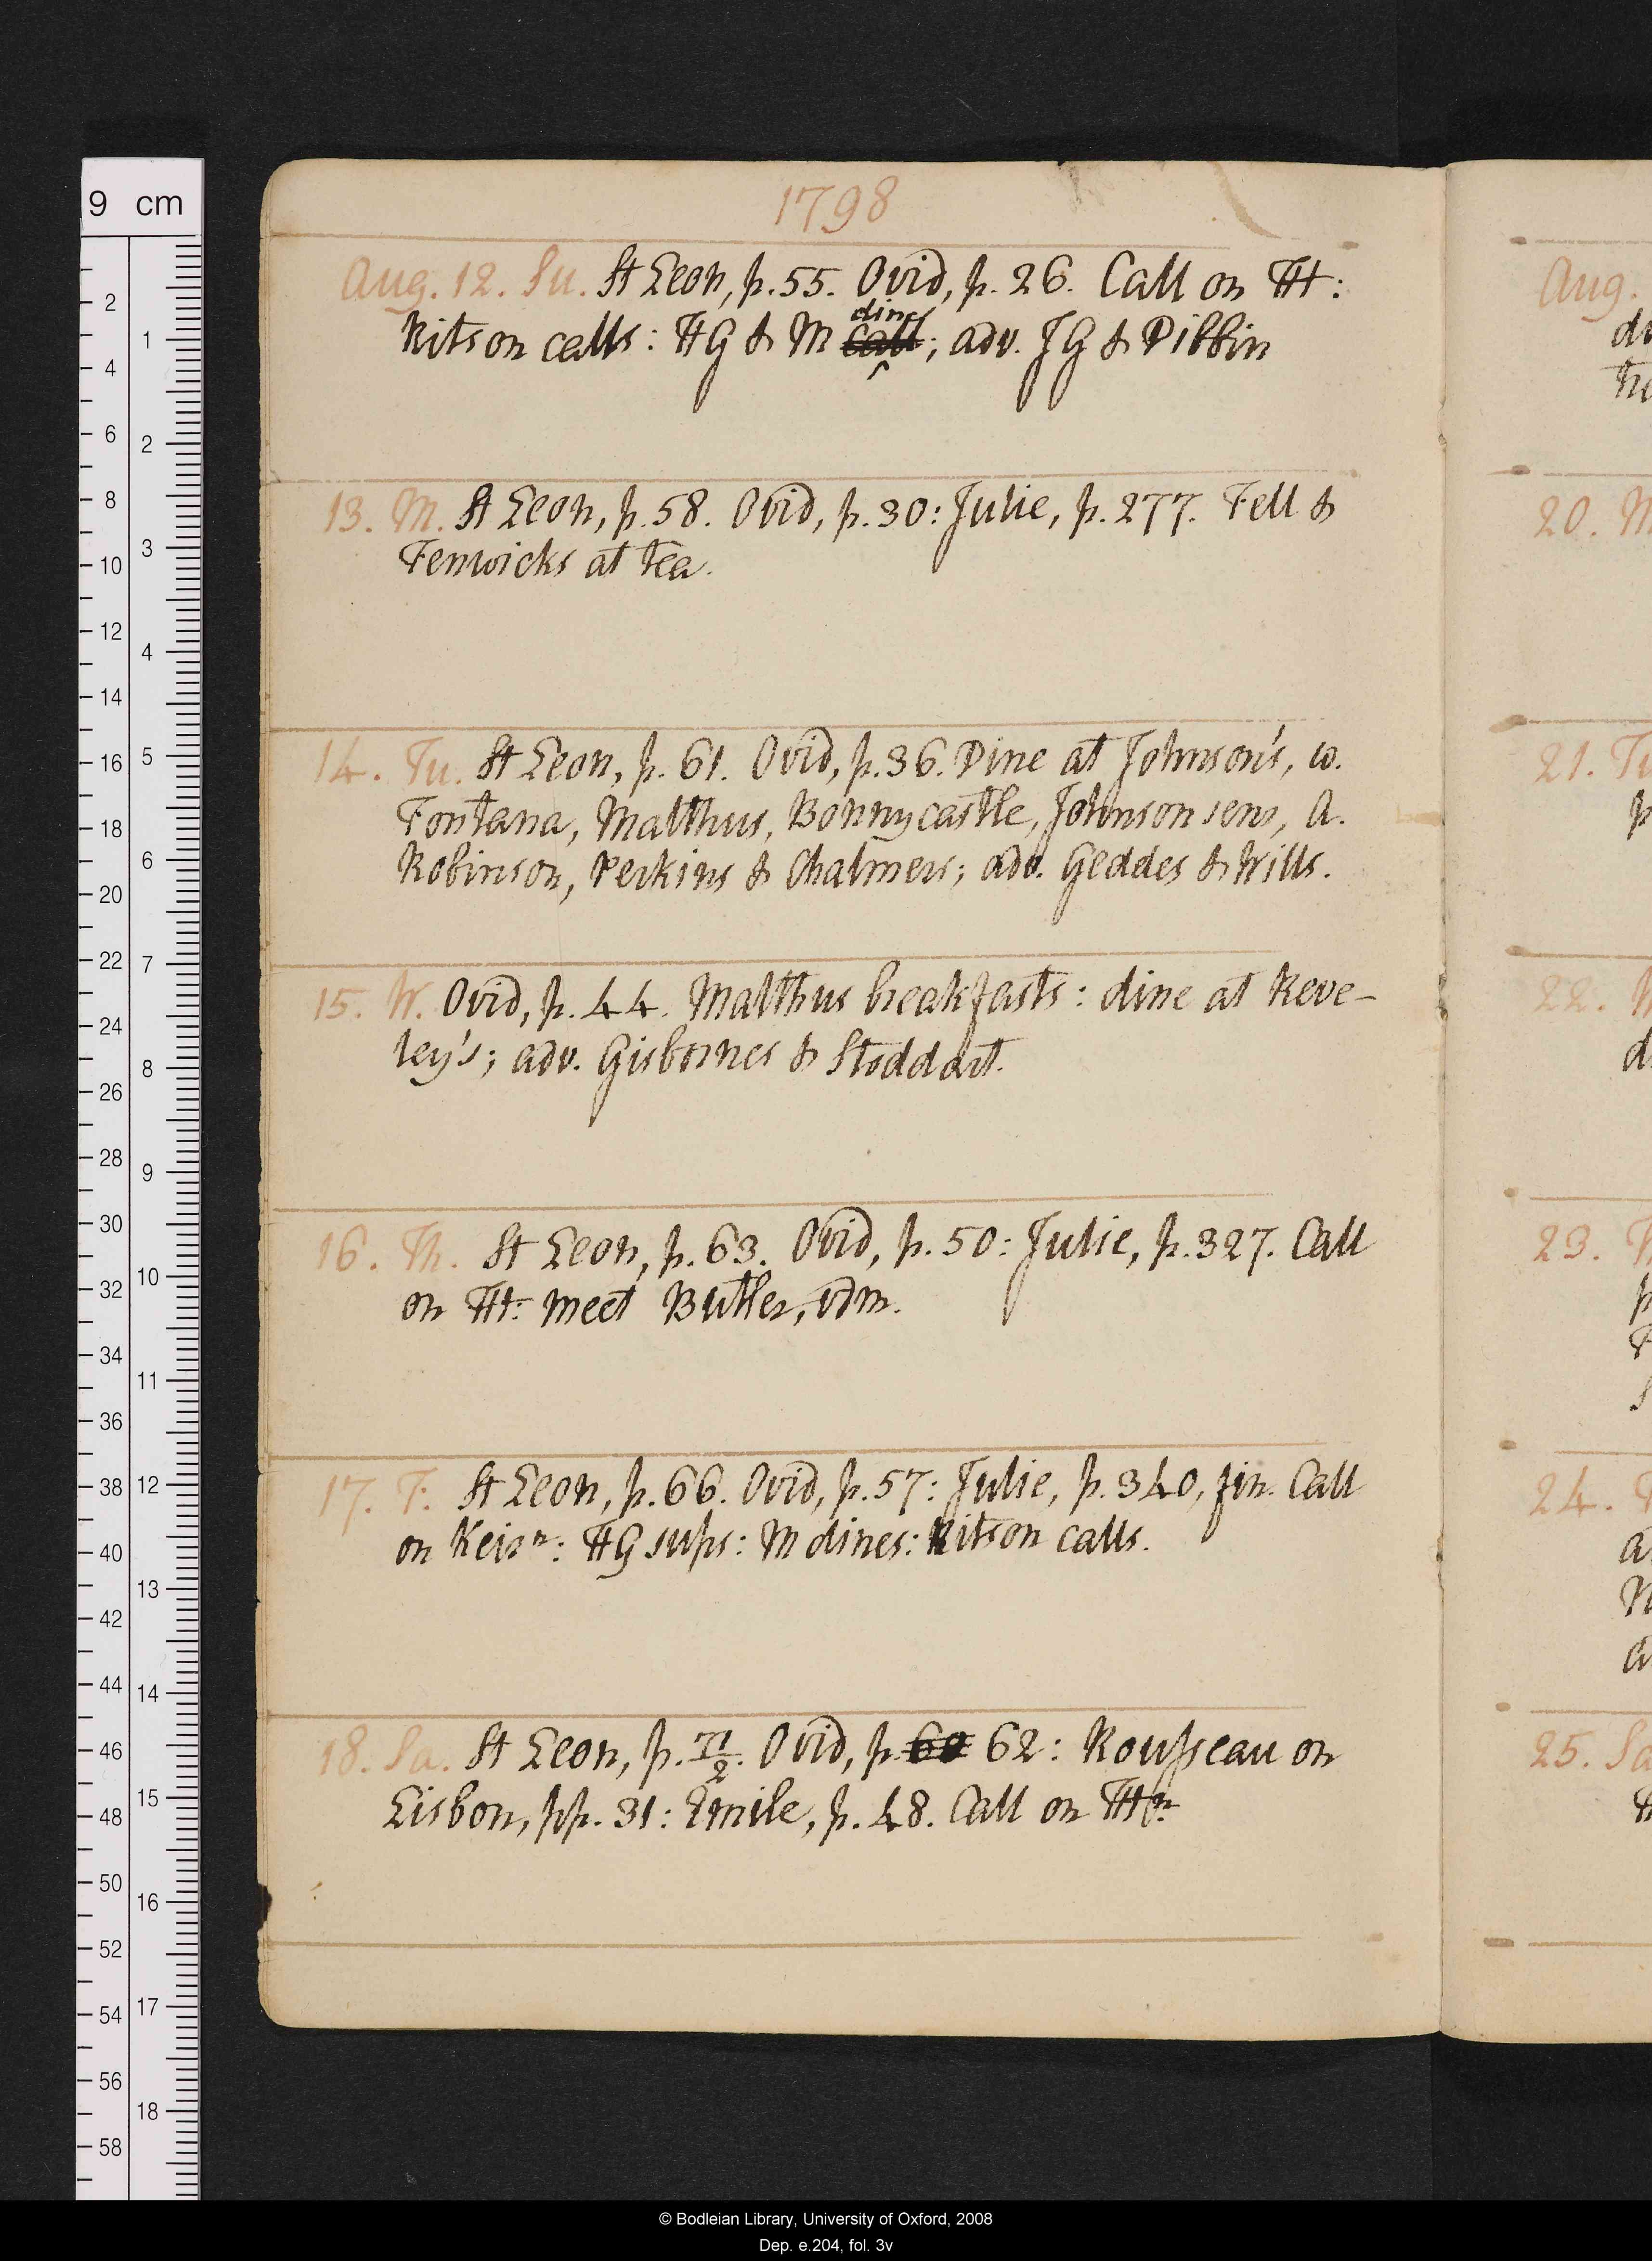 1798
Aug. 12. Su. St Leon, p. 55. Ovid, p. 26. Call on Ht:
dine
Ritson calls: HG & M call; adv. JG & Dibbin
13. M. St Leon, p. 58. Ovid, p. 30: Julie, p. 277. Fell &
Fenwicks at tea.
14. Tu. St Leon, p. 61. Ovid, p. 36. Dine at Johnson's, w.
Fontana, Malthus, Bonnycastle, Johnson sens, A.
Robinson, Perkins & Chalmers; adv. Geddes & Wills.
15. W. Ovid, p. 44. Malthus breakfasts: dine at Reve-
ley's; adv. Gisbornes & Stoddart.
16. Th. St Leon, p. 63. Ovid, p. 50: Julie, p. 327. Call
on Ht: meet Butler, vdm.
17. F. St Leon, p. 66. Ovid, p. 57: Julie, p. 340, fin. Call
on Keirn: HG sups: M dines: Ritson calls.
18. Sa. St Leon, p. 71/2. Ovid, p. 60 62: Rousseau on
Lisbon, pp. 31: Emile, p. 48. Call on
Aug.
20. M
21. Tu
22. W
23.
24.
25. Sa
9 cm
2
4
6
8
10
12
14
16
18
20
22
24
26
28
30
32
34
36
38
40
42
44
46
48
50
52
54
56
58
1
2
3
4
5
6
7
8
9
10
11
12
13
14
15
16
17
18
© Bodleian Library, University of Oxford, 2008
Dep. e.204, fol. 3v